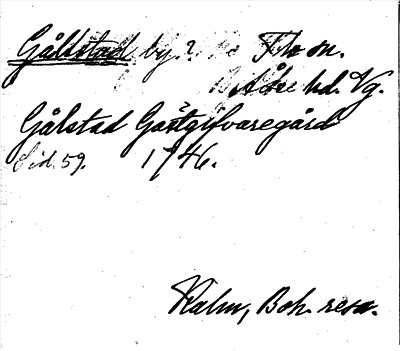 Gållstad by.? Fle sn.
Ås hd. Vg.
Gålstad Gästgifvaregård
Sid. 59. 1746.
Kalm, Boh. resa.